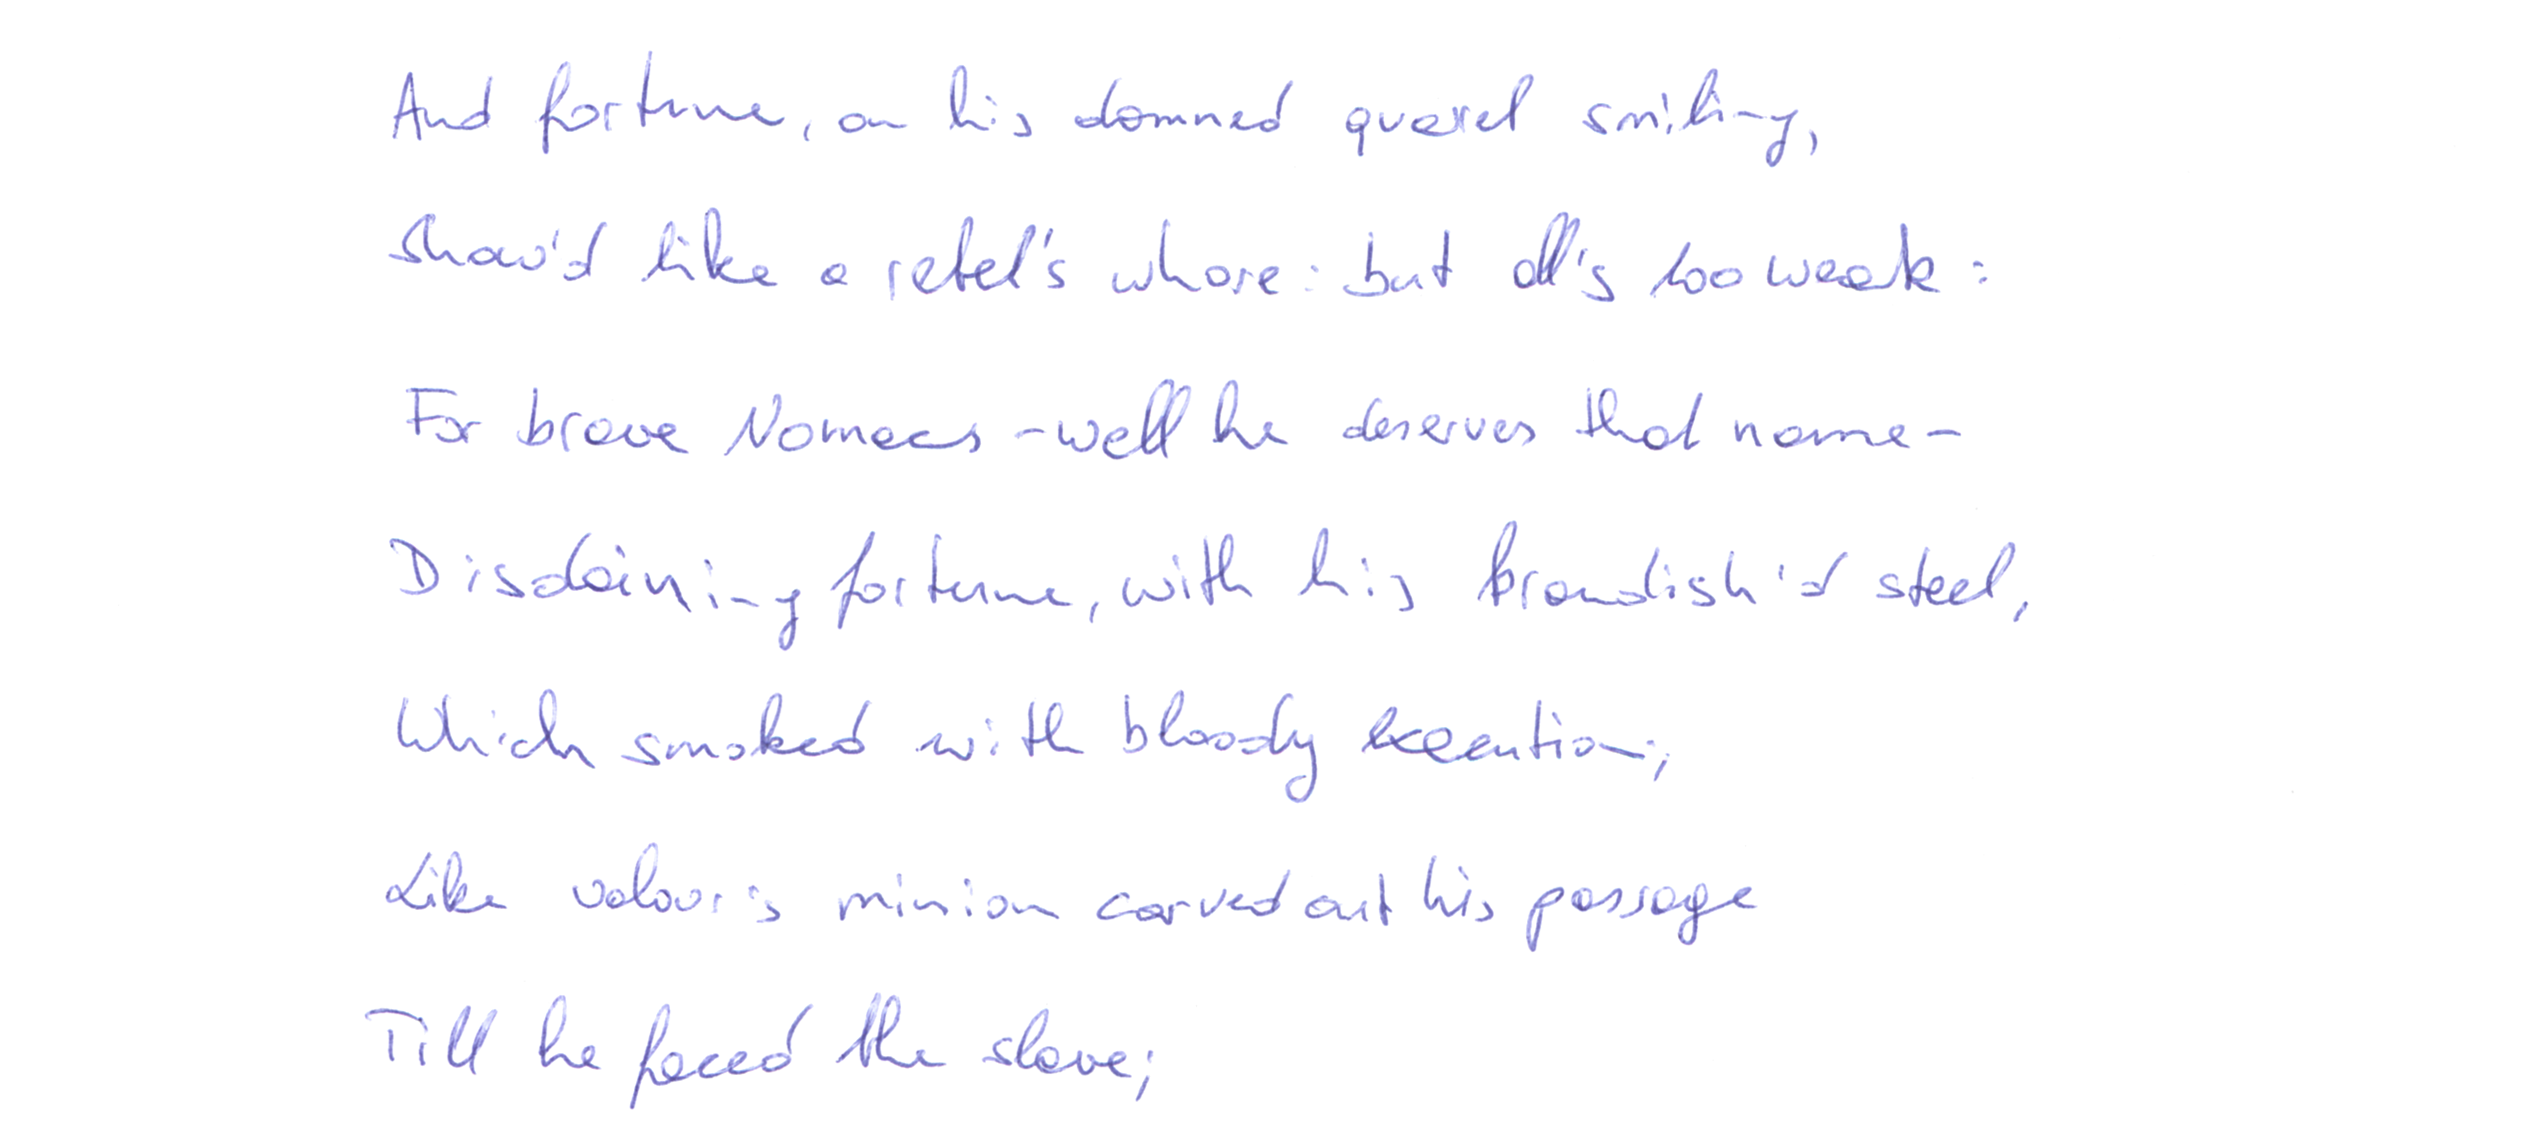 And fortune, on his damned quarel smiling,
Show'd like a rebel's whore: but all's too weak:
For brave Nomaes -well he deserves that name-
Disdaining fortune, with his brandish'd steel,
Which smoked with bloody execution,
Like valour's minion carved out his passage
Till he faced the slave;